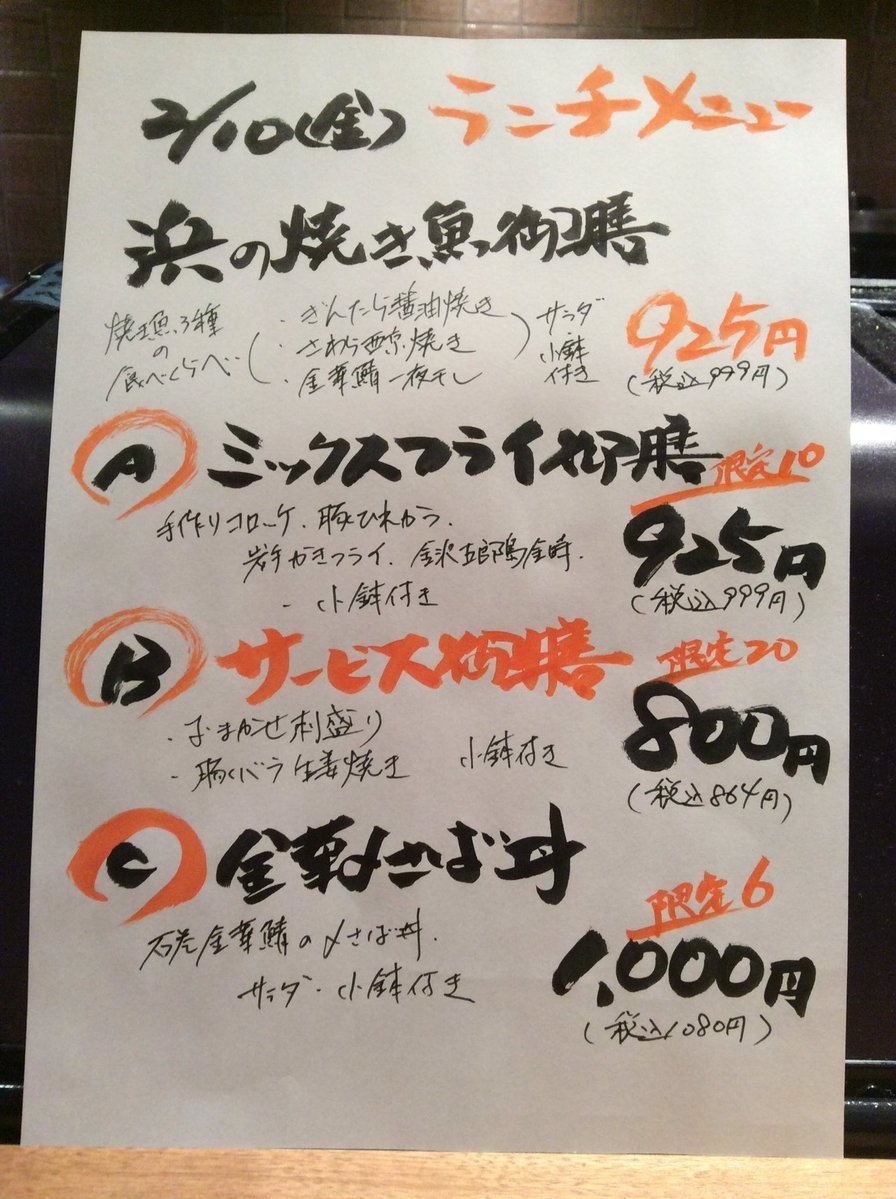 2/10(金) ランチメニュー
浜の焼き魚御膳
焼き魚3種
の
食べくらべ
・ぎんだら醤油焼き
・さわら西京焼き
・金華鯖一夜干し
サラダ
小鉢
付き
925円
(税込999円)
A ミックスフライ御膳 限定10
手作りコロッケ、豚ひれかつ、
岩手かきフライ、金沢五郎島金時、
・小鉢付き
925円
(税込999円)
B サービス御膳 限定20
・おまかせ刺盛り
・豚バラ生姜焼き 小鉢付き
800円
(税込864円)
C 金華〆さば丼
限定6
石巻金華鯖の〆さば丼、
サラダ・小鉢付き
1,000円
(税込1080円)